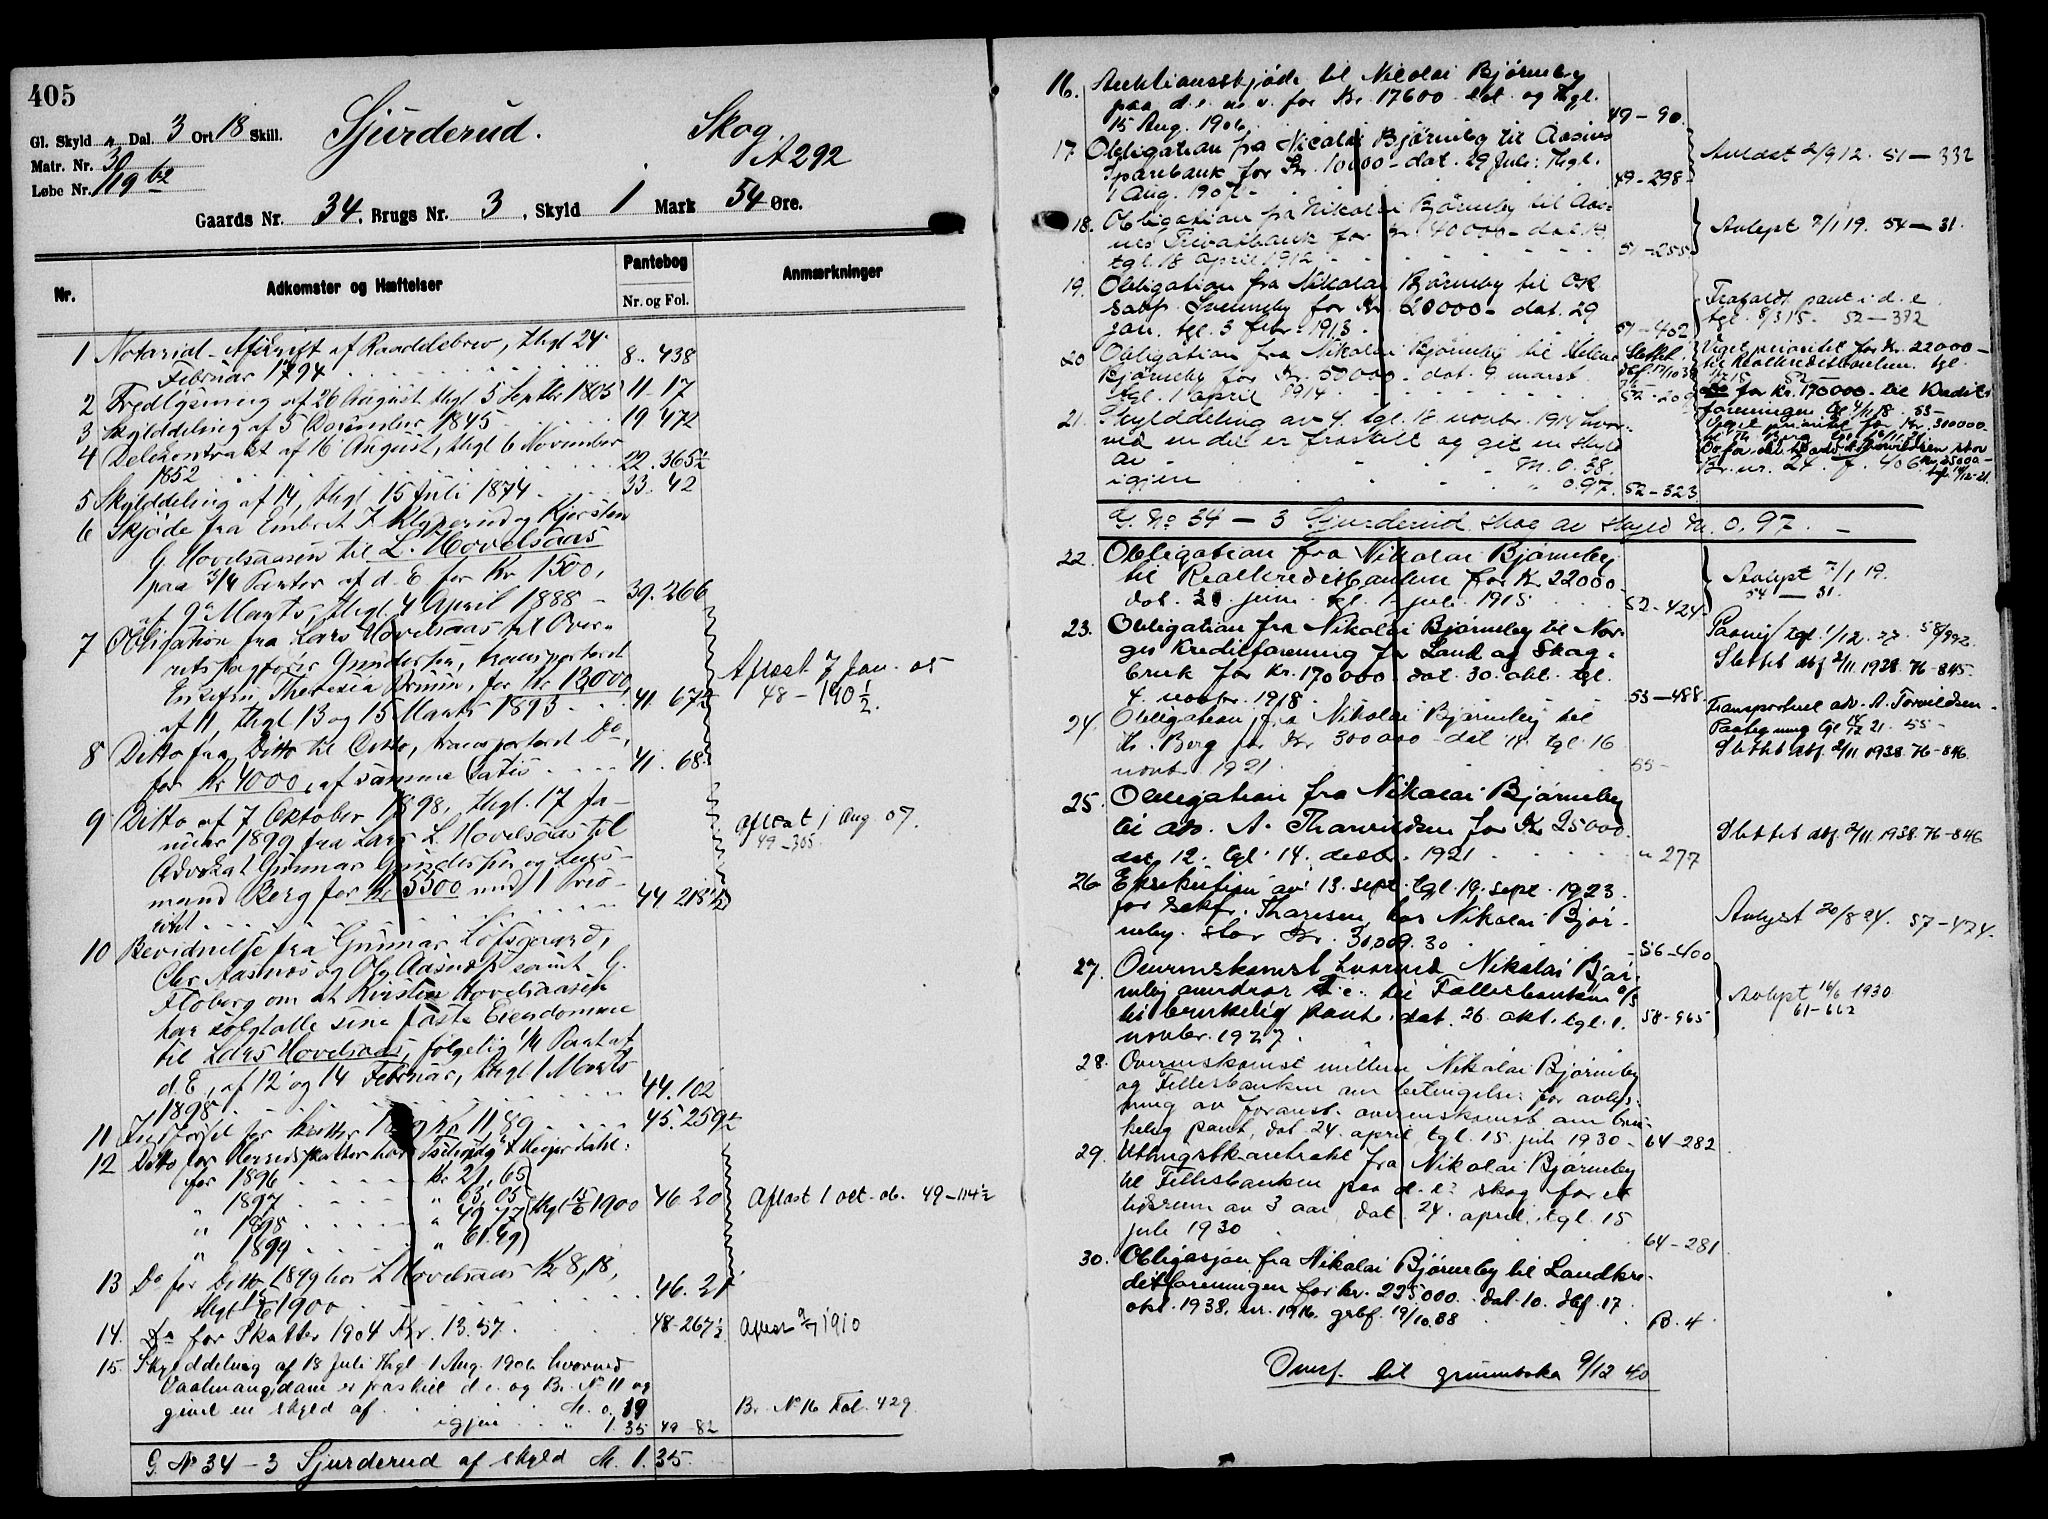 405
Gl. Skyld 4 Dal. 3 Ort 18 Skill.
Matr. Nr. 30
Løbe Nr. 119 b2
Sjurderud.
Skog
A292
Gaards Nr. 34. Brugs Nr. 3, Skyld 1 Mark 54 Øre.
Nr. Adkomster og Hæftelser Pantebog Anmærkninger
Nr. og Fol.
1 Notarial-Afskrift af Raadelebrev, thgl 24. 8. 438
Februar 1794
2 Fredlysning af 26 August thgl 5 Septbr 1805 11-17
3 Skylddeling af 5 December 1845 19 472
4 Delekontrakt af 16 August, thgl 6 November
1852 22. 365½
5 Skylddeling af 14, thgl 15 Juli 1874 33. 42
6 Skjøde fra Embret J. Klyperud og Kjersten
G. Hovelsaasen til L. Hovelsaas
paa 3/4 Parter af d. E for Kr. 1500,
af 9de Marts, thgl 4 April 1888 39. 266
7 Obligation fra Lars Hovelsaas til Over-
retssagfører Gundersen, transporteret
Enkefru Theresia Bruun, for Kr 12000,
af 11, thgl 13 og 15 Marts 1893 41 67½
Aflæst 7 Jan. 05
48-190½
8 Ditto fra Ditto til Ditto, transporteret Do,
for Kr 4000, af samme Datis 41. 68
9 Ditto af 7 Oktober 1898, thgl. 17 Ja-
nuar 1899 fra Lars L. Hovelsaas til
Advokat Gunnar Gundersen og Lens-
mand Berg for Kr 5500 med 1 Prio-
ritet 44 218½
Aflæst 1 Aug 07.
49-305
10 Bevidnelse fra Gunnar Lofsgaard,
Chr Aasnæs og Ole Aasnæs samt G.
Floberg om at Kirsten Hovelsaasen
har solgt alle sine faste Eiendomme
til Lars Hovelsaas, følgelig 1/4 Part af
d. E, af 12 og 14 Februar, thgl 1 Marts
1898 44. 102
11 Kr 11,89 45. 259½
12 Ditto for Herredsskatter hos
for 1896 Kr 21,65
" 1897 " 63,05 thgl 15/6 1900 46. 20
" 1898 " 49,17
" 1899 " 61.49
Aflæst 1 oct. 06. 49-114½
13 Do for Ditto 1899 hos L Hovelsaas Kr 8,18,
thgl 15/6 1900 46. 21
14. Do for Skatter 1904 Kr. 13.57. 48-267½ 1910
15. Skylddeling af 18 Juli thgl. 1 Aug. 1906 hvorved
er fraskilt d. e. og Br. No 11 og
givet en skyld af M. 0,19 Br. No 16 Fol. 429
igjen " 1.35 49-82
G. No 34-3 Sjurderud af skyld M. 1.35.
16. Auktionsskjøde til Nicolai Bjørneby
paa d. e. m. v. for Kr. 17600 dat. og thgl.
15 Aug. 1906 49-90.
17. Obligation fra Nicolai Bjørneby til Aasnes
Sparebank for Kr. 10000- dat. 29 Juli: thgl.
1 Aug. 1907 49-298-
Avlæst 2/9 12. 51-332
18. Obligation fra Nikolai Bjørneby til Aas-
nes Privatbank for Kr 40000- dat. 17,
tgl. 18 april 1912 51-255
Avlyst 7/1 19. 54-31.
19. Obligation fra Nikolai Bjørneby til O.R.
sakf. for Kr. 20000- dat. 29
jan. tgl. 3 febr. 1913 51-402
Frafaldt pant i d. e
tgl. 8/3 15. 52-392
20 Obligation fra Nikolai Bjørneby til Helene
Bjørneby for Kr. 50000- dat. 9. marts
tgl. 1 april 1914 52-209
Slettet
dbf. 17/10 38
Viget prioritet for Kr. 22000-
til Realkreditbanken tgl.
Do for Kr. 170000- til Kredit-
foreningen tgl 4/11 18. 53-
Viget prioritet for Kr. 300000-
til Th. Berg
21. Skylddeling av 4 tgl. 18 novbr. 1914 hvor-
ved en del er fraskilt og git en skyld
av M. 0.38.
igjen " 0.97. 52-323
Br. nr. 24. f. 406
G. No 34-3 Sjurderud skog av skyld M. 0.97.-
22. Obligation fra Nikolai Bjørneby
til Realkreditbanken for Kr. 22000
dat. 21 juni tgl. 1 juli 1915 52-424
Avlyst 7/1 19.
54-31.
23. Obligation fra Nikolai Bjørneby til Nor-
ges Kreditforening for Land og Skog-
bruk for Kr. 170000- dat. 30. okt. tgl.
4. novbr. 1918 53-488.
tgl. 1/12. 27. 58/992
Slettet dbf 2/11 1938. 76-845.
24. Obligation fra Nikolai Bjørneby til
Th. Berg for Kr 300000 - dat 14 tgl. 16
novbr 1921. 55-
Transporteret adv. A. Torvildsen.
Paategning tgl 21. 55-
Slettet dbf. 2/11 1938. 76-846.
25. Obligation fra Nikolai Bjørneby
til adv. A. Thorvildsen for Kr 25000.
dat. 12. tgl. 14. decbr. 1921 " 277
Slettet dbf. 2/11 1938. 76-846
26 Eksekution av 13. sept. tgl. 19. sept. 1923.
for sakf. Thoresen hos Nikolai Bjør-
neby. stor Kr. 30,009.30 56-400
Avlyst 20/8 24. 57-474.
27. Overenskomst hvorved Nikolai Bjør-
neby d. e. til Fællesbanken a/s
til brukelig pant. dat. 26. okt. tgl. 1.
novbr. 1927. 58-965
Avlyst 16/6 1930
61-662
28. Overenskomst mellem Nikolai Bjørneby
og Fellesbanken om betingelser for avløs-
ning av foranst. overenskomst om bru-
kelig pant, dat. 24. april tgl. 15 juli 1930 - 64-282
29. Utbringstkontrakt fra Nikolai Bjørneby
til Fellesbanken paa d. e. skog for et
tidsrum av 3 aar, dat 24. april tgl. 15
juli 1930 64-281
30. Obligasjon fra Nikolai Bjørneby til Landkre-
ditforeningen for kr. 225000. dat. 10. dbf. 17.
okt. 1938. nr. 1916. grbf. 19/10.38 B. 4.
Overf. til grunnboka 9/12 40